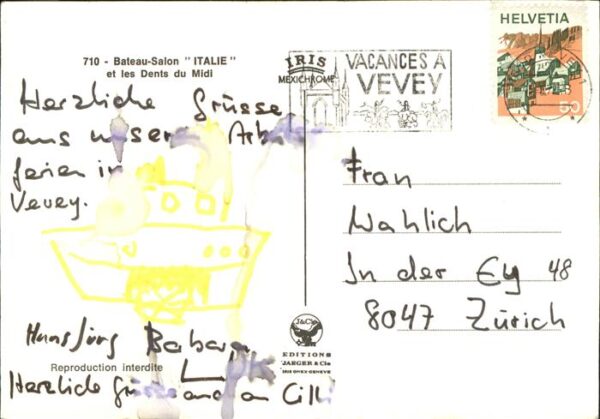 710 - Bateau-Salon "ITALIE"
et les Dents du Midi
Herzliche Grüsse
aus unseren Arbeits
ferien in
Vevey.
Hansjürg Barbara
Reproduction interdite
Herzliche Grüsse and an Cilli
IRIS
MEXICHROME
VACANCES A
VEVEY
HELVETIA
50
J&Cie
EDITIONS
JAEGER & Cie
Frau
Wahlich
In der Ey 48
8047 Zürich